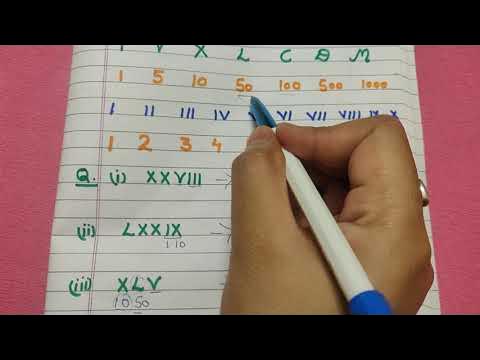 I V X L C D M
1 5 10 50 100 500 1000
I II III IV VI VII VIII IX X
1 2 3 4
Q. (i) XXVIII →
(ii) LXXIX →
1 10
(iii) XLV
10 50